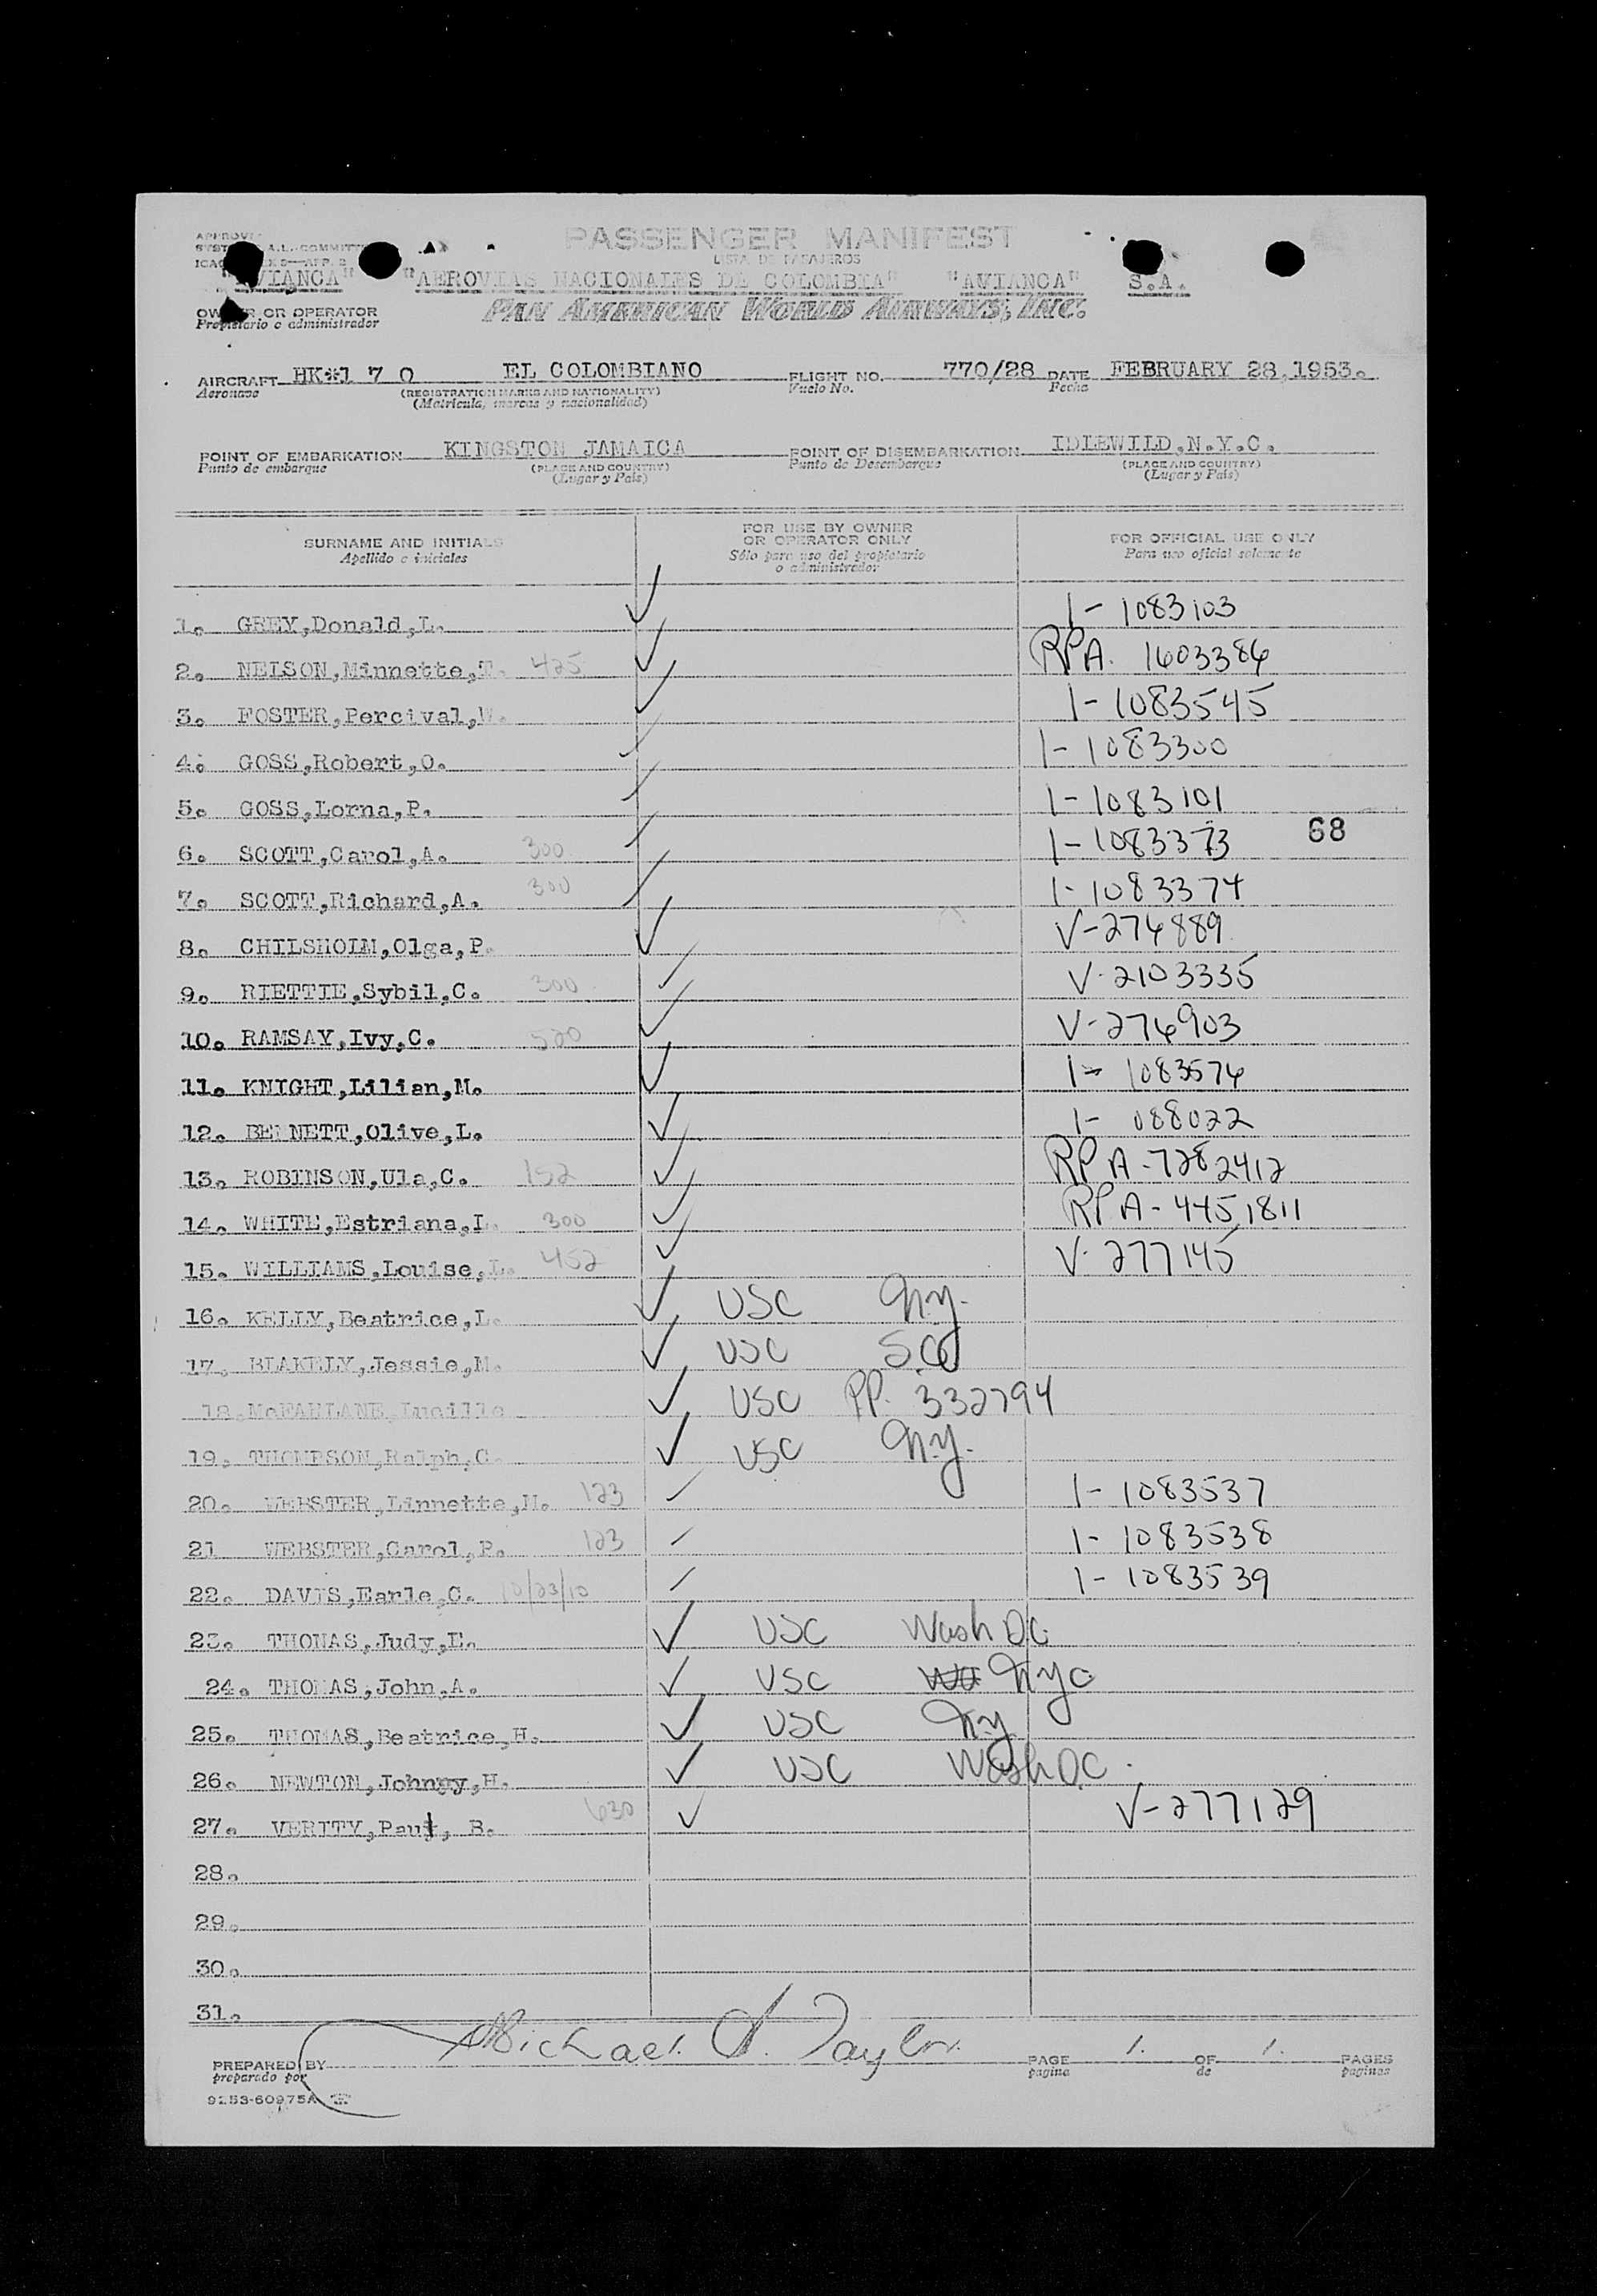 PASSENGER MANIFEST
LISTA DE PASAJEROS
"AVIANCA" "AEROVIAS NACIONALES DE COLOMBIA" "AVIANCA" S.A.
PAN AMERICAN WORLD AIRWAYS, INC.
OWNER OR OPERATOR
Propietario o administrador
AIRCRAFT HK*1 7 0 EL COLOMBIANO FLIGHT NO. 770/28 DATE FEBRUARY 28,1953.
Aeronave (REGISTRATION MARKS AND NATIONALITY) Vuelo No. Fecha
(Matricula, marcas y nacionalidad)
POINT OF EMBARKATION KINGSTON JAMAICA POINT OF DISEMBARKATION IDLEWILD.N.Y.C.
Punto de embarque (PLACE AND COUNTRY) Punto de Desembarque (PLACE AND COUNTRY)
(Lugar y Pais) (Lugar y Pais)
SURNAME AND INITIALS FOR USE BY OWNER OR OPERATOR ONLY FOR OFFICIAL USE ONLY
Apellido e iniciales Sólo para uso del propietario o administrador Para uso oficial solamente
1. GREY,Donald,L. ✓ 1- 1083103
2. NELSON,Minnette,T. 425 ✓ RPA. 1603386
3. FOSTER,Percival,W. ✓ 1-1083545
4. GOSS,Robert,O. ✓ 1-1083300
5. GOSS,Lorna,P. ✓ 1-1083101
6. SCOTT,Carol,A. 300 ✓ 1-1083373 68
7. SCOTT,Richard,A. 300 ✓ 1-1083374
8. CHILSHOLM,Olga,P. ✓ V-274889
9. RIETTIE,Sybil,C. 300 ✓ V-2103335
10. RAMSAY,Ivy,C. 520 ✓ V-274903
11. KNIGHT,Lilian,M. ✓ 1- 1083574
12. BENNETT,Olive,L. ✓ 1- 088022
13. ROBINSON,Ula,C. 152 ✓ RPA-7282412
14. WHITE,Estriana,I. 300 ✓ RPA-4451811
15. WILLIAMS,Louise,L. 452 ✓ V-277145
16. KELLY,Beatrice,L. ✓ USC N.Y.
17. BLAKELY,Jessie,M. ✓ USC
18. McFARLANE,Lucille ✓ USC PP. 332794
19. THOMPSON,Ralph,C. ✓ USC N.Y.
20. WEBSTER,Linnette,M. 123 ✓ 1-1083537
21 WEBSTER,Carol,P. 123 ✓ 1-1083538
22. DAVIS,Earle,C. 10/23/10 ✓ 1-1083539
23. THOMAS,Judy,E. ✓ USC Wash DC
24. THOMAS,John,A. ✓ USC NYC
25. THOMAS,Beatrice,H. ✓ USC NY
26. NEWTON,Johnny,H. ✓ USC Wash DC.
27. VERITY,Paul, B. 630 ✓ V-277129
28.
29.
30.
31.
PREPARED BY Michael A. Taylor PAGE 1. OF 1. PAGES
preparado por pagina de paginas
9253-60975A